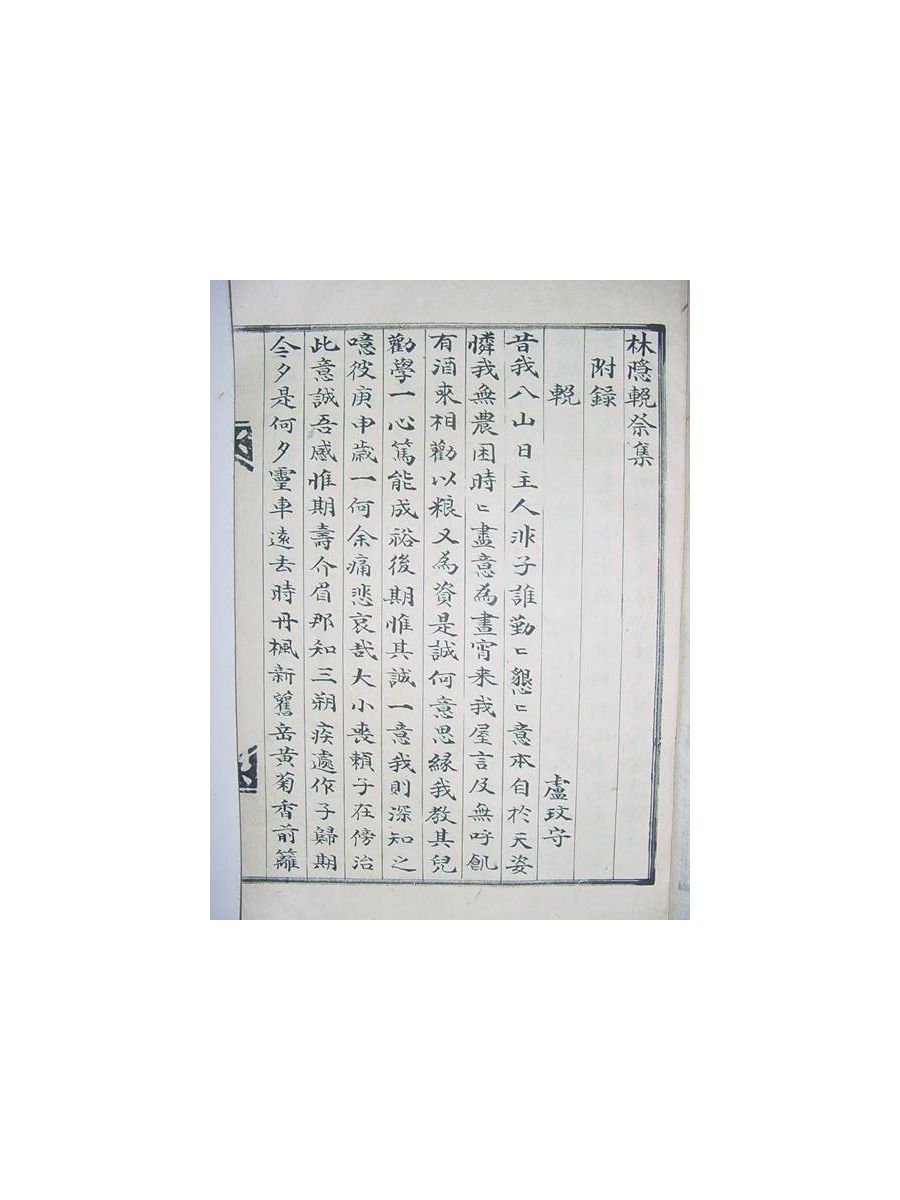 林隱輓祭集
附録
輓
盧玟守
昔我入山日主人非子誰勤〻懇〻意本自於天姿
憐我無農困時〻盡意為晝宵来我屋言及無呼飢
有酒来相勸以粮又為資是誠何意思緣我教其兒
勸學一心篤能成裕後期惟其誠一意我則深知之
噫彼庚申歲一何余痛悲哀哉大小喪賴子在傍治
此意誠吾感惟期壽介眉那知三朔疾遽作子歸期
今夕是何夕靈車遠去時丹楓新舊岳黃菊香前籬